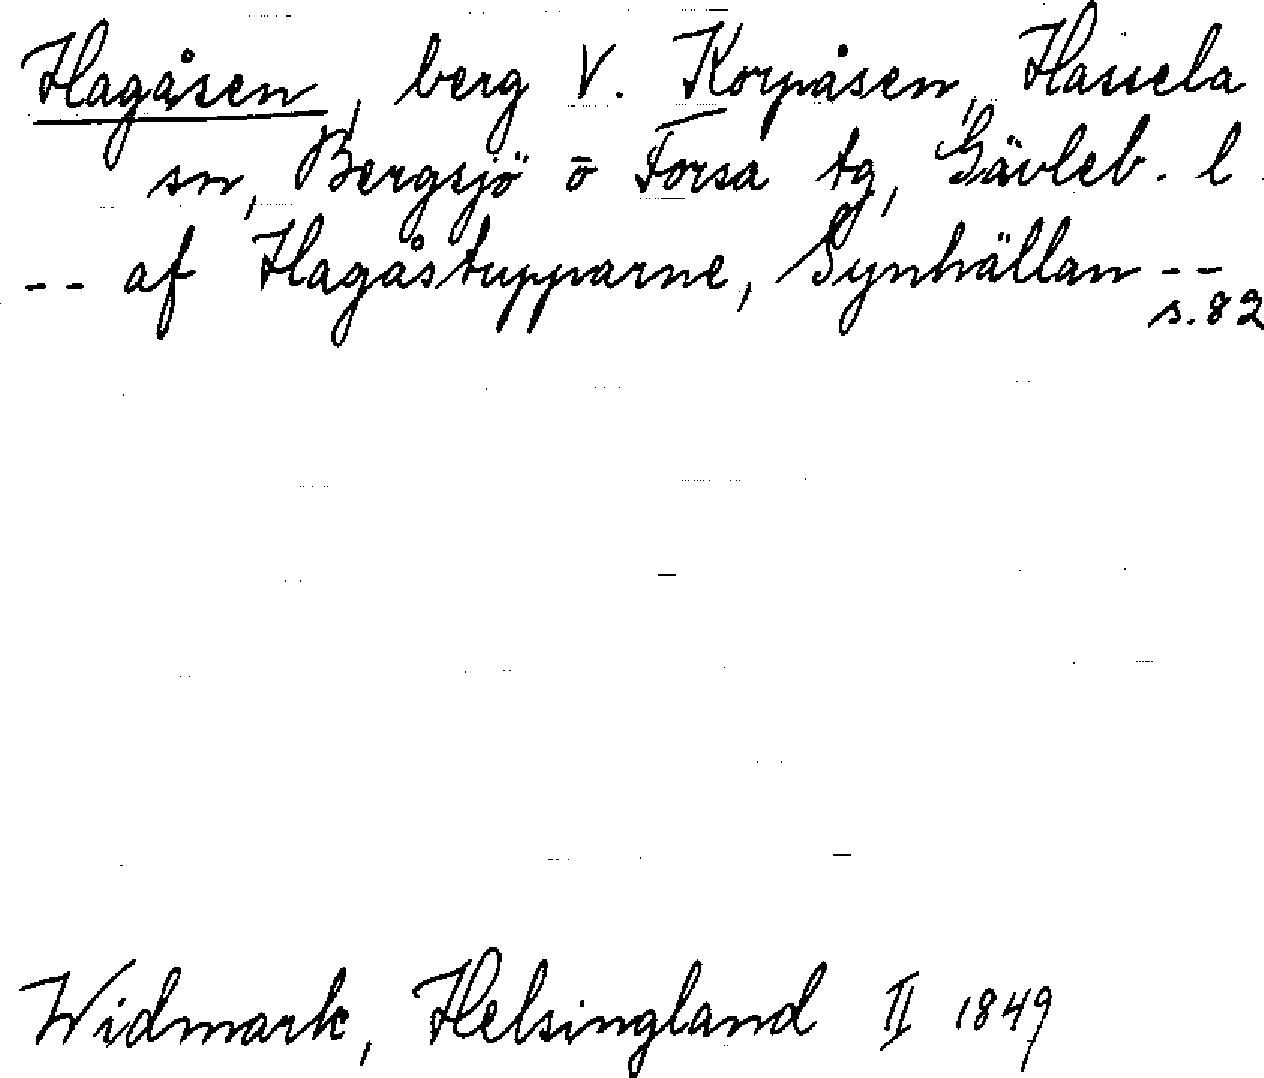 Hagåsen, berg V. Korpåsen, Hassela
sn, Bergsjö o Forsa tg, Gävleb. l
-- af Hagåstupparne, Synhällan --
s. 82
Widmark, Helsingland II 1849